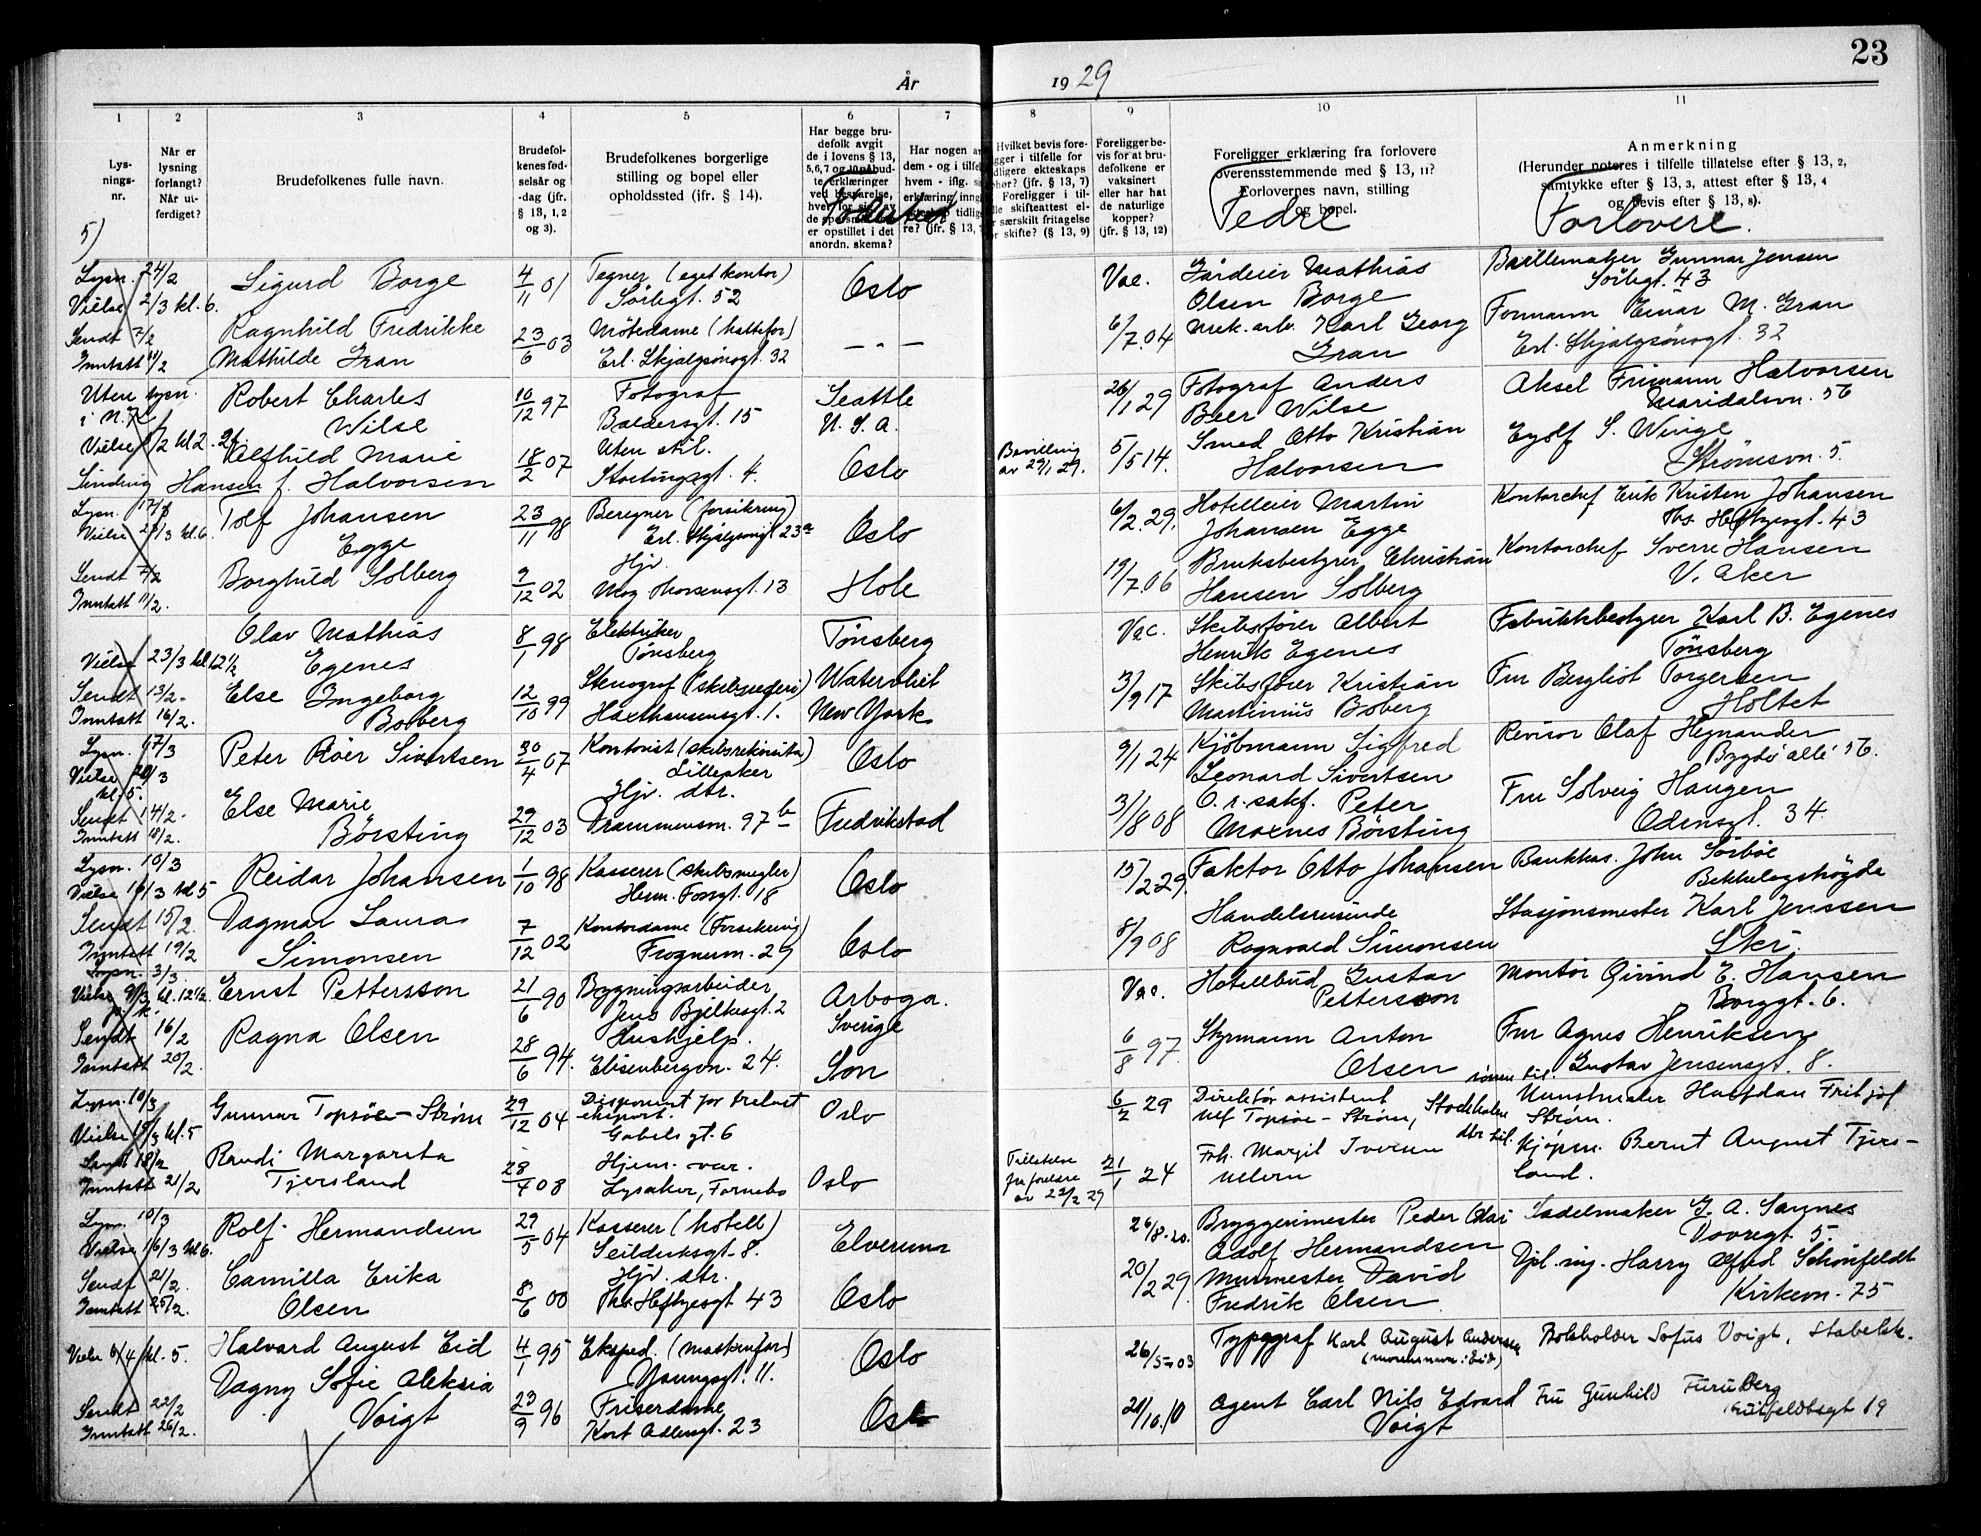 23
År
19 29
1
2
3
4
5
6
7
8
9
10
11
Lys-
nings-
nr.
Når er
lysning
forlangt?
Når ut-
ferdiget?
Brudefolkenes fulle navn.
Brudefol-
kenes fød-
selsår og
-dag (jfr.
§ 13, 1, 2
og 3).
Brudefolkenes borgerlige
stilling og bopel eller
opholdssted (jfr. § 14).
Har begge bru-
defolk avgit
de i lovens § 13,
er opstillet i det
anordn. skema?
Har nogen
dem - og i tilfelle
hvem - iflg.
Hvilket bevis fore-
ligger i tilfelle for
tidligere ekteskaps
ophør? (jfr. § 13, 7)
Foreligger i til-
felle skifteattest el-
særskilt fritagelse
skifte? (§ 13, 9)
Foreligger be-
vis for at bru-
defolkene er
vaksinert
eller har hat
de naturlige
kopper?
(jfr. § 13, 12)
Foreligger erklæring fra forlovere
overensstemmende med § 13, 11?
Forlovernes navn, stilling
og bopel.
Fedre
Anmerkning
(Herunder noteres i tilfelle tillatelse efter § 13, 2,
samtykke efter § 13, 3, attest efter § 13, 4
og bevis efter § 13, 8).
Forlovere.
Fødested
5)
Lysn. 24/2
Vielse 2/3 kl. 6.
Sigurd Borge
4/11 01
Tegner (eget kontor)
Sørligt. 52
Oslo
Vac.
Gårdeier Mathias
Olsen Borge
Gunnar Jensen
Sørligt. 43
Sendt 7/2
Inntatt 11/2
Ragnhild Fredrikke
Mathilde Gran
23/6 03
Motedame (hattefor)
Erl. Skjalgsønsgt. 32
— " —
6/7.04
Mek. arb. Karl Georg
Gran
Formann Einar M. Gran
Erl. Skjalgsønsgt. 32
Uten lysn.
Robert Charles
Wilse
10/12 97
Fotograf
Baldersgt. 15
Seattle
U. S. A.
26/1 29
Fotograf Anders
Beer Wilse
Aksel Frimann Halvorsen
Maridalsvn. 56
Alfhild Marie
Hansen f. Halvorsen
18/2 07
Uten stil.
Stortingsgt. 4.
Oslo
Bevilling
av 29/1 29.
5/5 14.
Smed Otto Kristian
Halvorsen
Eyolf S. Winge
Strømsvn. 5.
Lysn. 17/3
Vielse 23/3 kl. 6.
Tolf Johansen
Egge
23/11 98
Beregner (forsikring)
Erl. Skjalgsønsgt. 23a
Oslo
6/2.29.
Hotelleier Martin
Johansen Egge
Kontorchef Erik Kristen Johansen
Ths. Heftyesgt. 43
Sendt 7/2
Inntatt 11/2.
Borghild Solberg
9/12 02
Hjv.
Mog Thorsensgt. 13
Hole
19/7.06
Bruksbestyrer Christian
Hansen Solberg
Kontorchef Sverre Hansen
V. Aker
Vielse 23/3 kl. 12 1/2
Olav Mathias
Egenes
8/1 98
Elektriker
Tønsberg
Tønsberg
Vac.
Skibsfører Albert
Henrik Egenes
Fabrikkbestyrer Karl B. Egenes
Tønsberg
Sendt 13/2.
Inntatt 16/2.
Else Ingeborg
Boberg
12/10 99
Stenograf (skibsrederi)
Haxthausensgt. 1.
Watervliet
New York
3/9 17
Skibsfører Kristian
Martinius Boberg
Fru Bergliot Torgersen
Holtet
Lysn. 17/3
Peter Röer Sivertsen
30/4 07
Kontorist (skibsrekvisita)
Lilleaker
Oslo
9/1 24
Kjøbmann Sigfred
Leonard Sivertsen
Revisor Olaf Hegnander
Bygdø allé 56.
Sendt 14/2.
Inntatt 18/2.
Else Marie
Børsting
29/12 03
Hjv. dtr.
Drammensvn. 97 b
Fredrikstad
3/8 08
O. r. sakf. Peter
Moxnes Børsting
Fru Solveig Haugen
Odinsgt. 34.
Lysn. 10/3
Vielse 16/3 kl. 5
Reidar Johansen
1/10 98
Kasserer (skibsmegler)
Herm. Fossgt. 18
Oslo
15/2.29.
Faktor Otto Johansen
Bankkas. John Sørbøe
Bekkelagshøgda
Sendt 15/2.
Inntatt 19/2
Dagmar Laura
Simonsen
7/12 02
Kontordame (Forsikring)
Frognervn. 29
Oslo
8/9 08
Handelsreisende
Ragnvald Simonsen
Stasjonsmester Karl Jenssen
Ski.
Lysn. 3/3.
Vielse 9/3 kl. 12 1/2
Ernst Pettersson
21/6 90
Bygningsarbeider
Jens Bjelkesgt. 2
Arboga.
Sverige
Vac.
Hotellbud Gustav
Pettersson
Montør Øivind E. Hansen
Borggt. 6.
Sendt 16/2
Inntatt 20/2.
Ragna Olsen
28/6 94.
Hushjelp.
Elisenbergvn. 24.
Son
6/8 97.
Styrmann Anton
Olsen
Fru Agnes Henriksen
Gustav Jensensgt. 8.
Lysn. 10/3
Vielse 16/3 kl. 5
Gunnar Topsøe-Strøm
29/12 04
Disponent for trelast
eksport.
Gabels gt. 6
Oslo
6/2 29
Direktør assistent
Ulf Topsøe-Strøm, Stockholm
sønn til
Kunstmaler Halfdan Fritjof
Strøm.
Sendt 18/2
Inntatt 21/2
Randi Margareta
Tjersland
28/4 08
Hjem. vær.
Lysaker, Fornebo
Oslo
Tillatelse
fra foreldre
av 22/2 29
21/1 24
Frk. Margit Iversen
Ullern
dtr. til.
Kjøpm. Bernt August Tjers-
land.
Lysn. 10/3
Vielse 16/3 kl. 6.
Rolf Hermandsen
29/5 04
Kasserer (hotell)
Seilduksgt. 8.
Elverum
26/8.20.
Bryggerimester Peder Olai
Adolf Hermandsen
Sadelmaker G. A. Sannes
Dovregt. 5.
Sendt 21/2.
Inntatt 25/2.
Camilla Erika
Olsen
8/6 00
Hjv. dtr.
Ths. Heftyesgt 43
Oslo
20/2 29.
Murmester David
Fredrik Olsen
Dipl. ing. Harry Alfred Schönfeldt
Kirkevn. 75
Vielse 6/4 kl. 5.
Halvard August Eid
4/1 95
Eksped. (maskinfor)
Youngsgt. 11.
Oslo
26/5-03
Typograf Karl August Andersen
(morens navn: Eid)
Bokholder Sofus Voigt, Stabekk.
Sendt 22/2
Inntatt 26/2.
Dagny Sofie Aleksia
Voigt
23/9 96
Friserdame
Kort Adlersgt. 23
Oslo
20/10.10
Agent Carl Nils Edvard
Voigt
Fru Gunhild Furuberg
Huitfeldtsgt 19